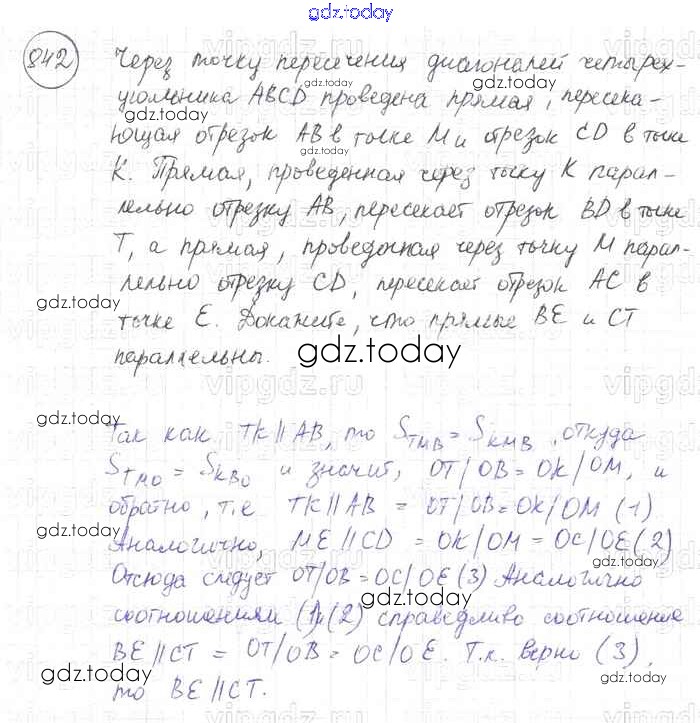 gdz.today
842 Через точку пересечения диагоналей четырех-
угольника ABCD проведена прямая, пересека-
ющая отрезок AB в точке M и отрезок CD в точке
K. Прямая, проведенная через точку K парал-
лельно отрезку AB, пересекает отрезок BD в точке
T, а прямая, проведенная через точку M парал-
лельно отрезку CD, пересекает отрезок AC в
точке E. Докажите, что прямые BE и CT
параллельны.
Так как TK∥AB, то S_TMB = S_KMB, откуда
S_TMO = S_KBO и значит, OT/OB = OK/OM, и
обратно, т.е TK∥AB = OT/OB = OK/OM (1)
Аналогично, ME∥CD = OK/OM = OC/OE (2)
Отсюда следует OT/OB = OC/OE (3) Аналогично
соотношениям (1)и(2) справедливо соотношение
BE∥CT = OT/OB = OC/OE. Т.к. верно (3),
то BE∥CT.
gdz.today
gdz.today
gdz.today
gdz.today
gdz.today
gdz.today
gdz.today
gdz.today
gdz.today
gdz.today